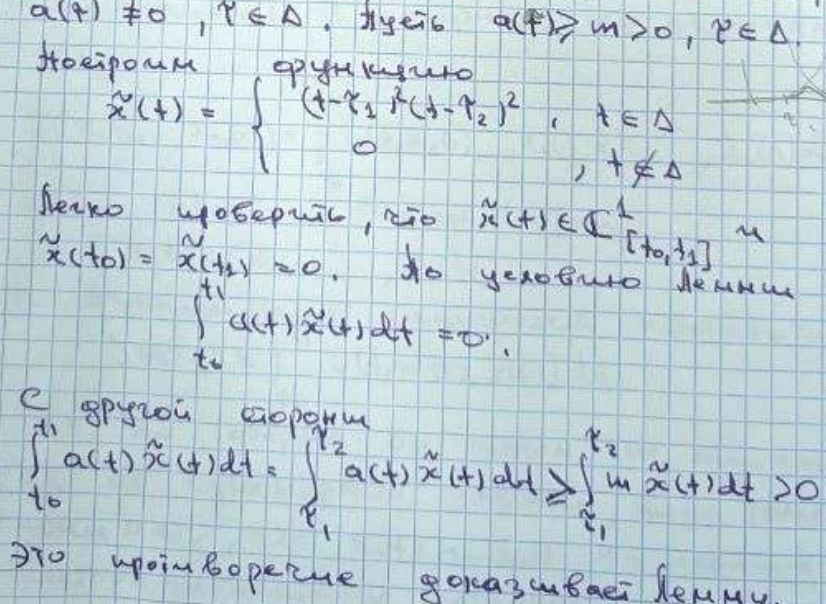 a(t) ≠ 0 , τ ∈ Δ . Пусть a(t) ≥ m > 0, τ ∈ Δ.
Построим функцию
x̃(t) = { (t-τ₁)²(t-τ₂)² , t ∈ Δ
0 , t ∉ Δ
Легко проверить, что x̃(t) ∈ C¹[t₀,t₁] и
x̃(t₀) = x̃(t₁) = 0. По условию Леммы
∫_{t₀}^{t₁} a(t) x̃(t) dt = 0.
С другой стороны
∫_{t₀}^{t₁} a(t) x̃(t) dt = ∫_{τ₁}^{τ₂} a(t) x̃(t) dt ≥ ∫_{τ₁}^{τ₂} m x̃(t) dt > 0
Это противоречие доказывает Лемму.